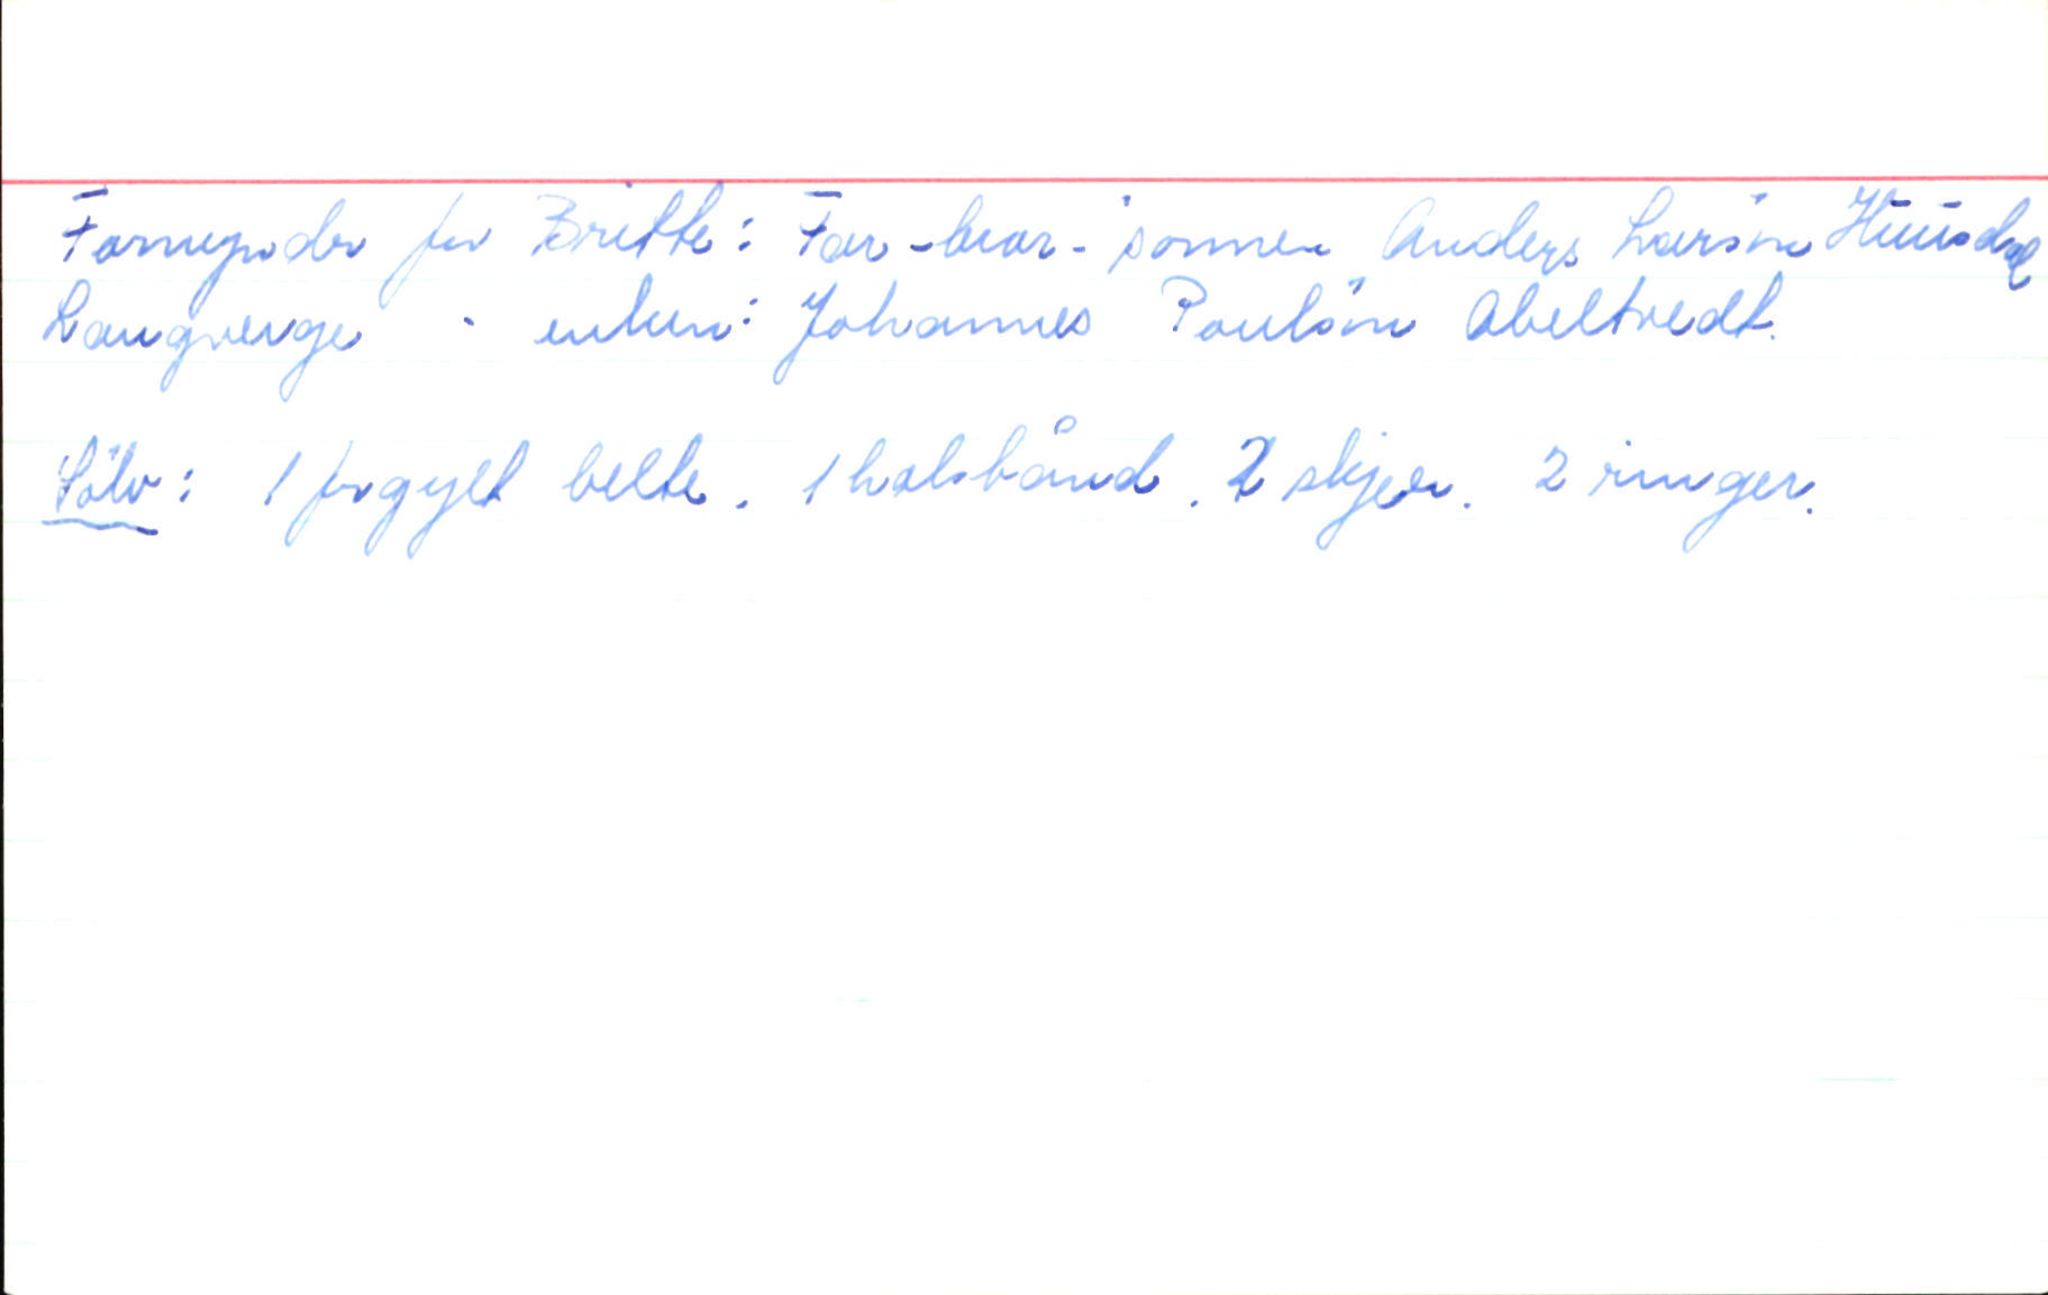 Formynder for Britte: Far-bror-sønnen Anders Larsøn Huusdal
Laugverge " enken: Johannes Poulsøn Abeltvedt.
Sölv: 1 forgylt belte. 1 halsbånd. 2 skjeer. 2 ringer.